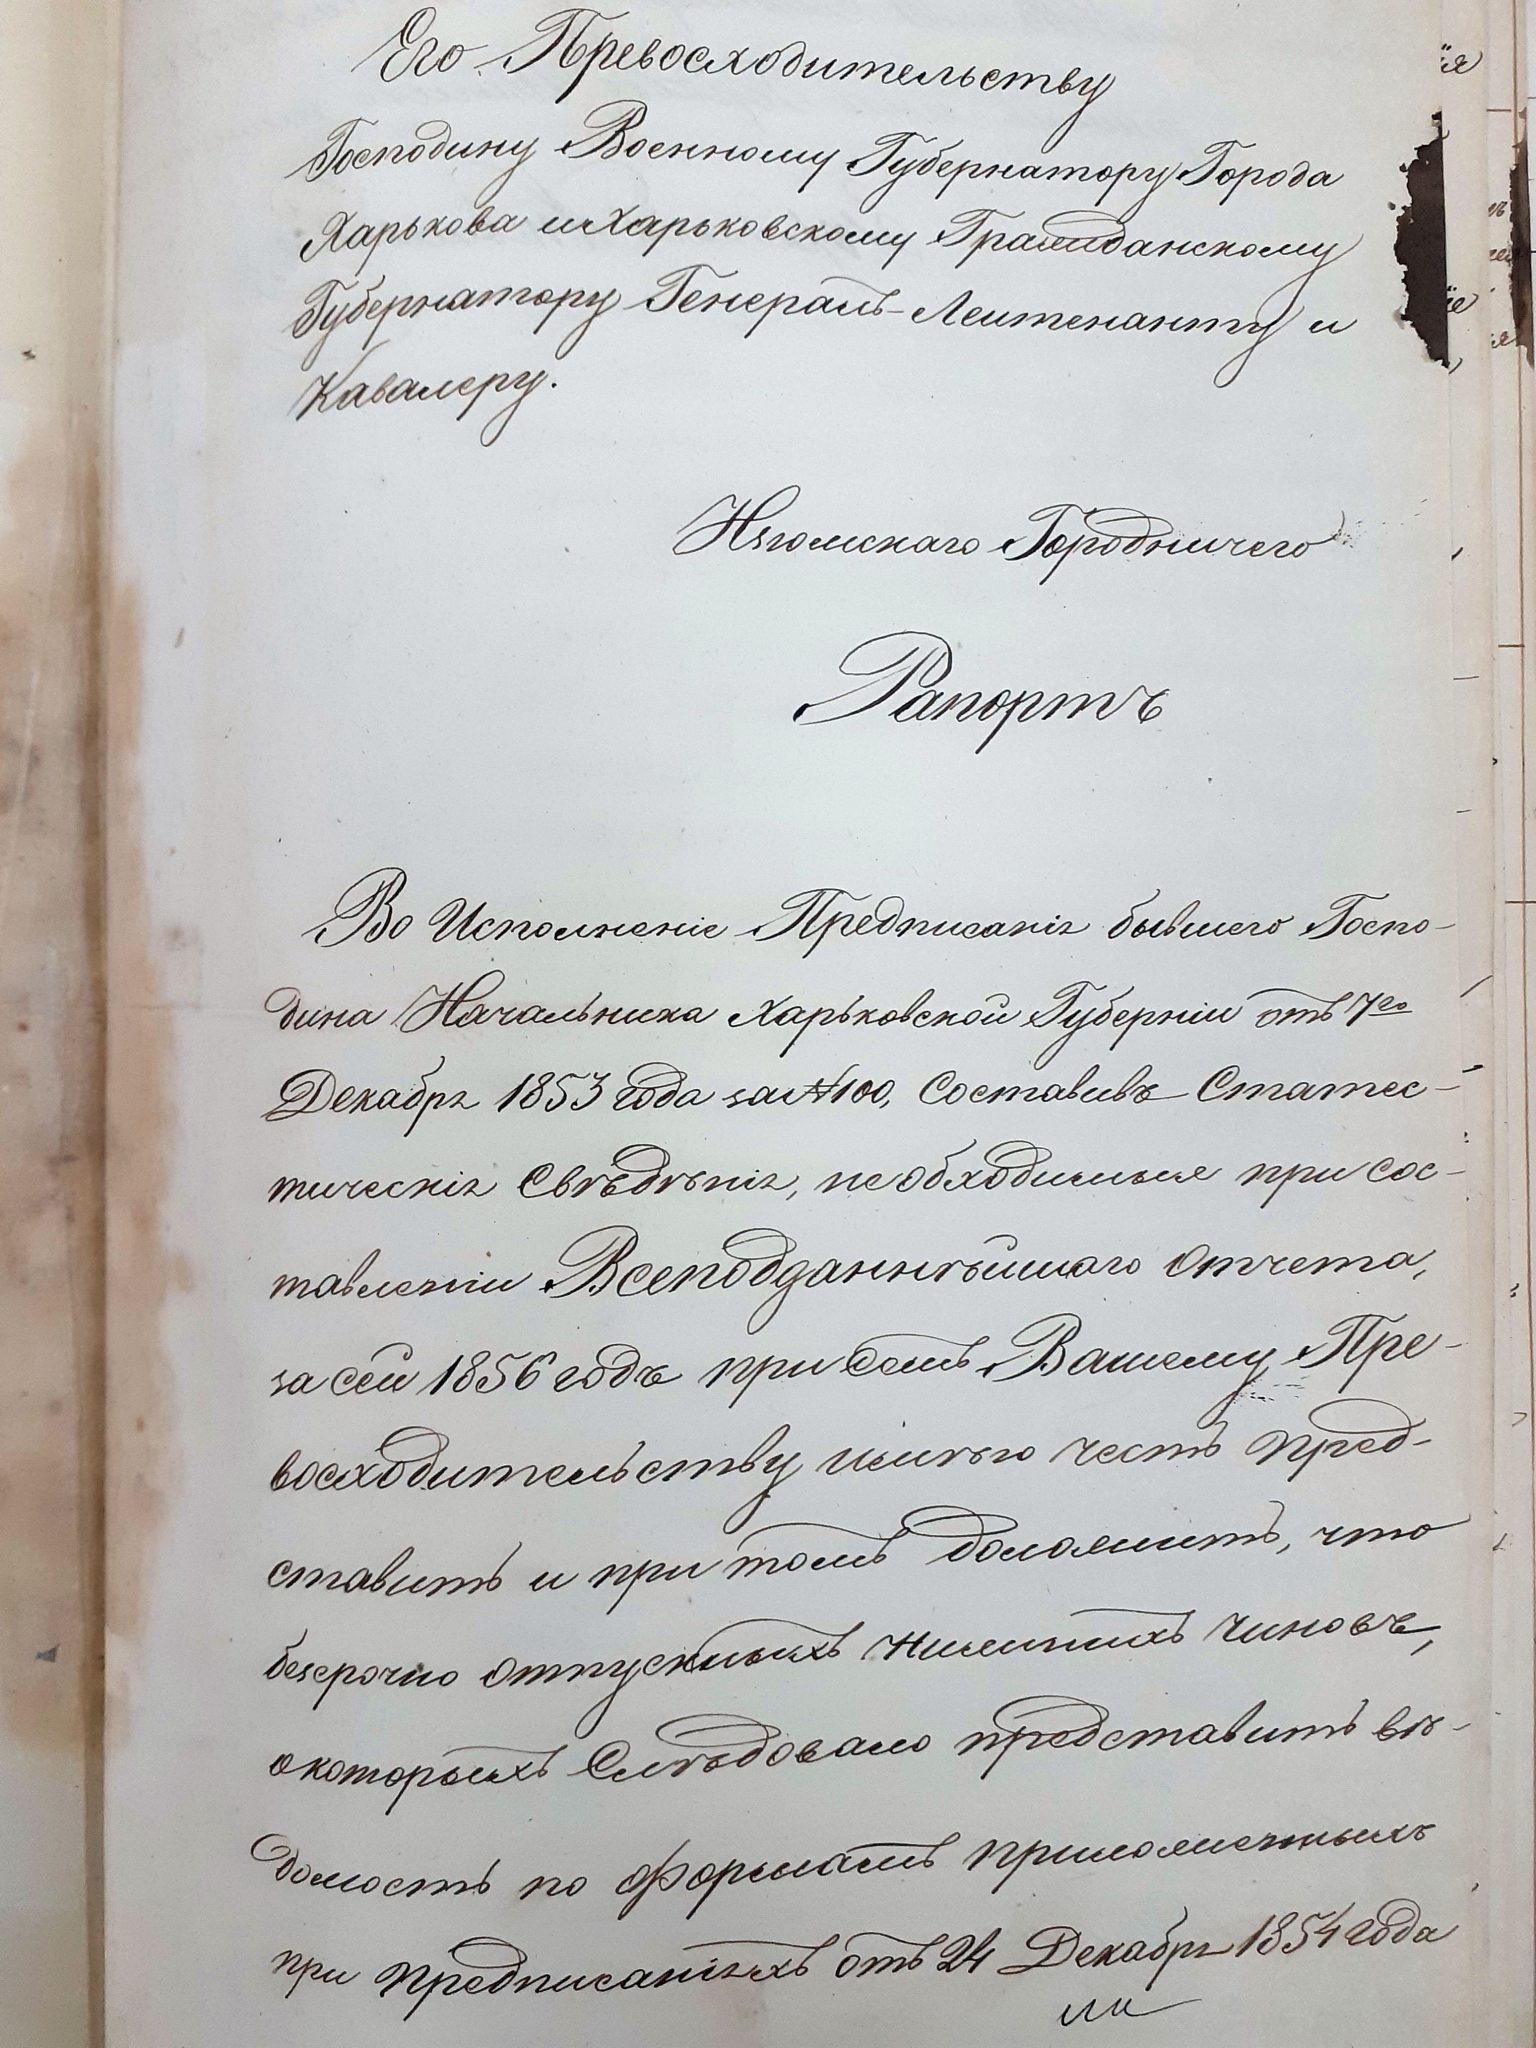 Его Превосходительству
Господину Военному Губернатору Города
Харькова и Харьковскому Гражданскому
Губернатору Генералъ-Леитенанту и
Кавалеру.
Изюмскаго Городничего
Рапортъ
Во Исполненіе Предписанія бывшего Госпо-
дина Начальника Харьковской Губерніи отъ 7го
Декабря 1853 года за № 100, Составивъ Статес-
тическія Свѣдѣнія, необходимыя при сос-
тавленіи Всеподданнѣйшаго Отчета,
за сей 1856 годъ при семъ Вашему Пре-
восходительству имѣю честь пред-
ставить и при томъ доложить, что
безсрочно отпускныхъ нижнихъ чиновъ,
о которыхъ Слѣдовало представить вѣ-
домость по формамъ приложенныхъ
при предписаніяхъ отъ 24 Декабря 1854 года